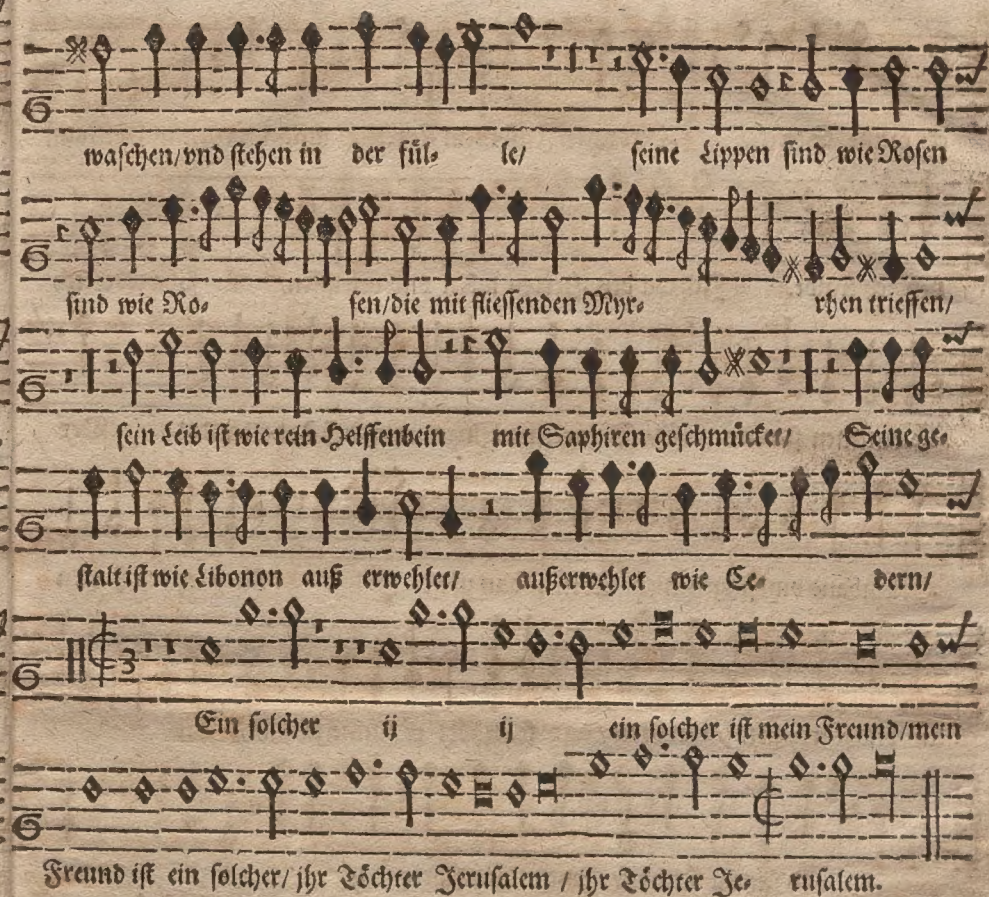 waschen/vnd stehen in der fül- le/ seine Lippen sind wie Rosen
sind wie Ro- sen/die mit fliessenden Myr- rhen trieffen/
sein Leib ist wie rein Helffenbein mit Saphiren geschmücket/ Seine ge-
stalt ist wie Libonon auß erwehlet/ außerwehlet wie Ce- dern/
Ein solcher ij ij ein solcher ist mein Freund/mein
Freund ist ein solcher/ jhr Töchter Jerusalem / jhr Töchter Je- rusalem.